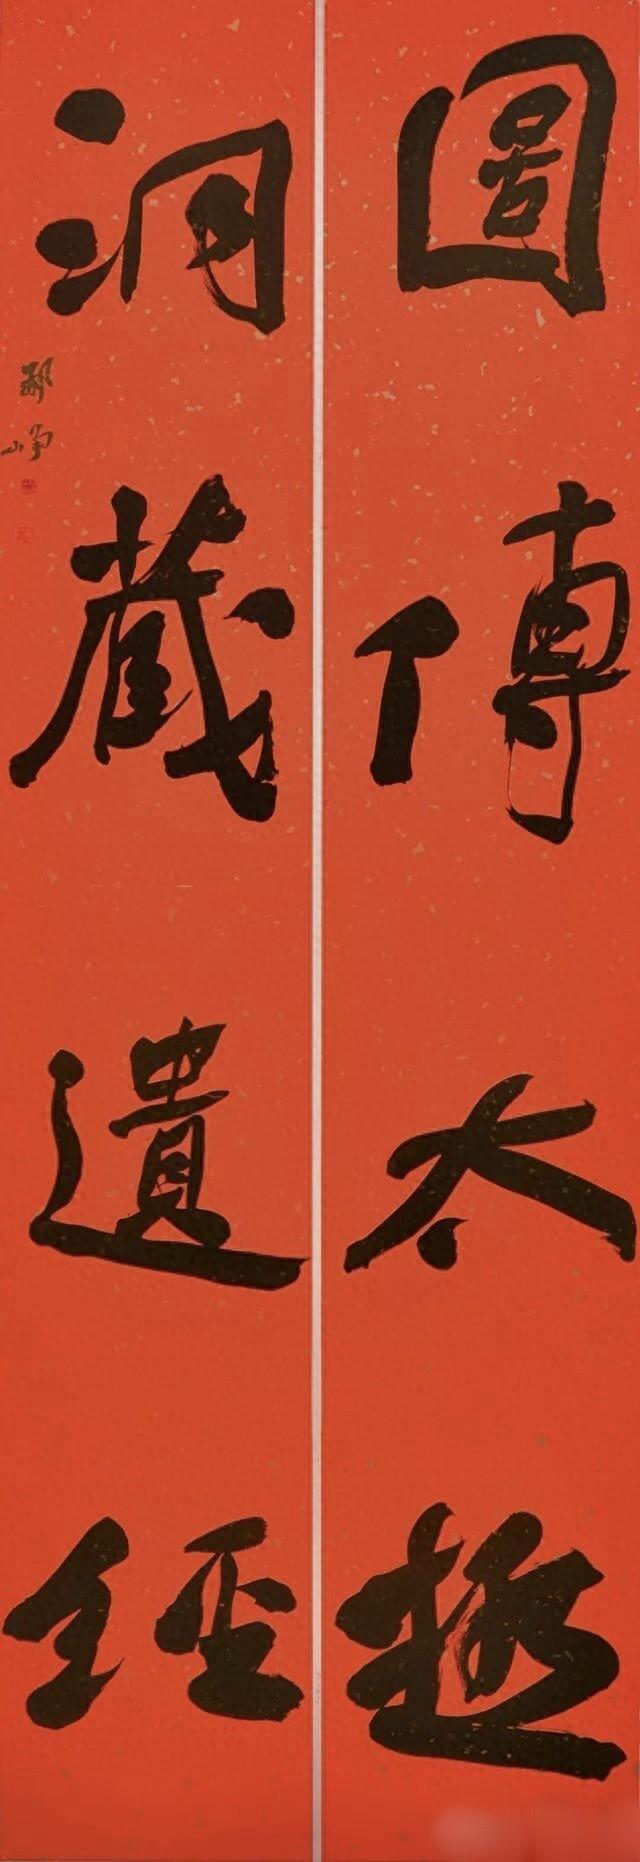 圖傳太極
洞藏遺經